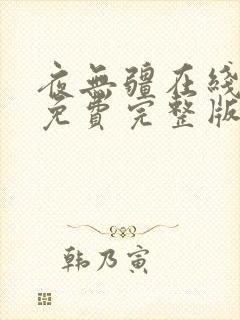 夜無疆在綫
免費完整版
韩乃寅